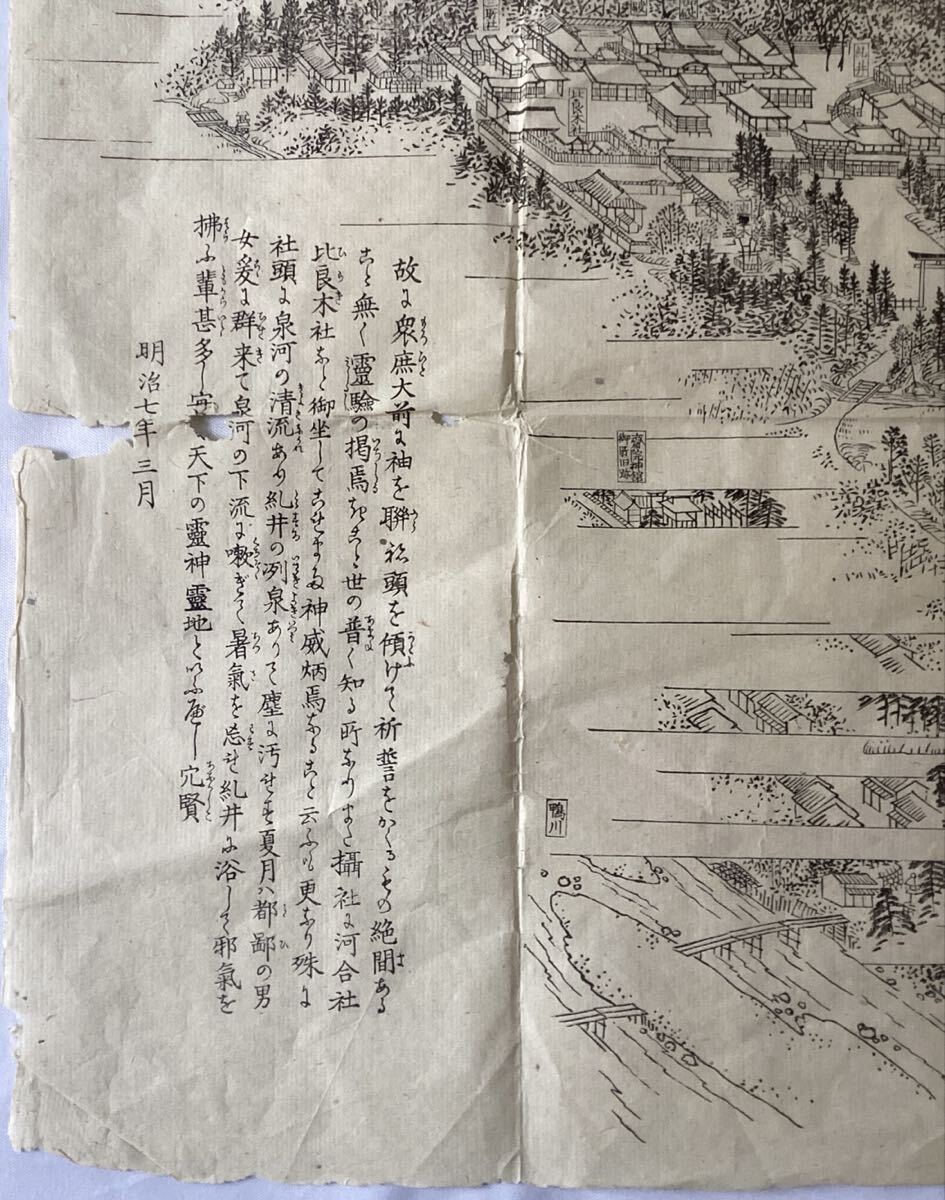 故に衆庶大前に袖を聯ね頭を傾けて祈誓をかくるもの絶間ある
こと無く靈驗の掲焉きこと世の普く知る所なりまた攝社に河合社
比良木社など御坐してこをまた神威炳焉なること云ふも更なり殊に
社頭に泉河の清流あり糺井の冽泉ありて塵に汚せず夏月ハ都鄙の男
女爰に群来て泉河の下流に嗽ぎて暑氣を忘せ糺井に浴して邪氣を
拂ふ輩甚多し 天下の靈神靈地といふべし穴賢
明治七年三月
比良木社
御井
齋院神舘
御所旧跡
鴨川